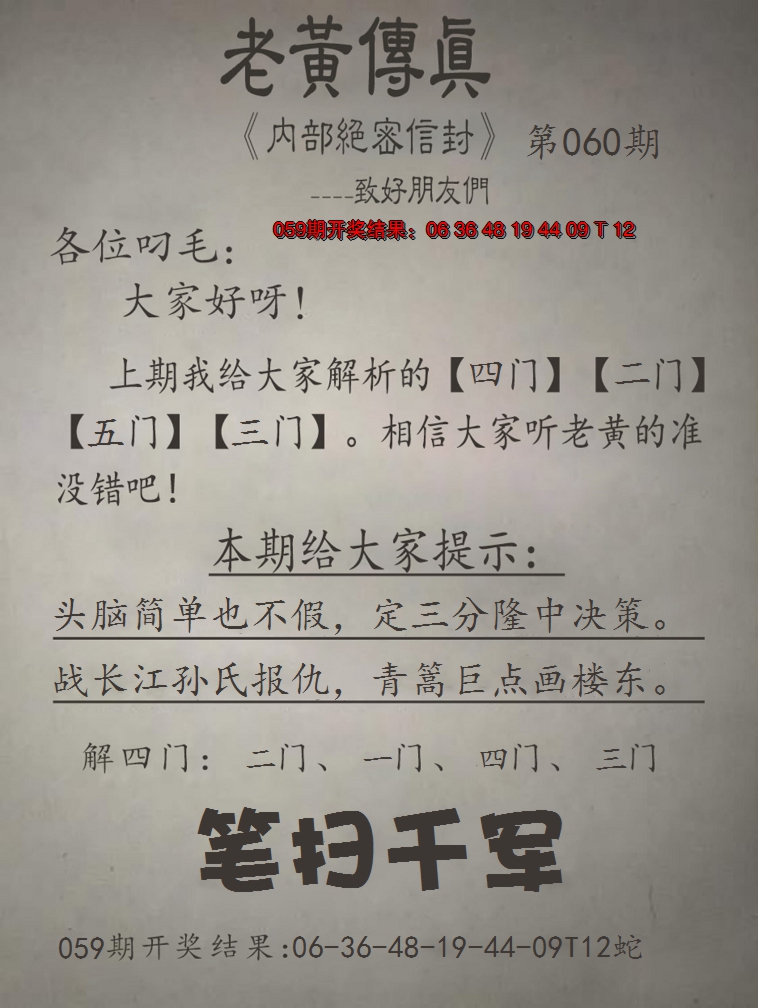 老黃傳眞
《内部絕密信封》 第060期
----致好朋友們
059期开奖结果：06 36 48 19 44 09 T 12
各位叼毛：
大家好呀！
上期我给大家解析的【四门】【二门】
【五门】【三门】。相信大家听老黄的准
没错吧！
本期给大家提示：
头脑简单也不假，定三分隆中决策。
战长江孙氏报仇，青篙巨点画楼东。
解四门： 二门、 一门、 四门、 三门
笔扫千军
059期开奖结果:06-36-48-19-44-09T12蛇